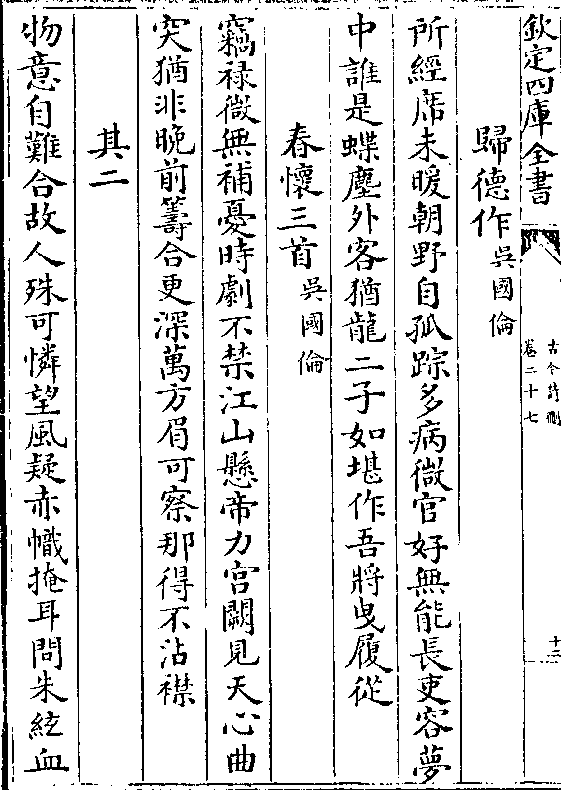 欽定四庫全書
古今詩刪
卷二十七
十二
歸德作 吳國倫
所經席未暖朝野自孤踪多病微官好無能長吏容夢
中誰是蝶塵外客猶龍二子如堪作吾將曳履從
春懷三首 吳國倫
竊祿微無補憂時劇不禁江山懸帝力宮闕見天心曲
突猶非晚前籌合更深萬方眉可察那得不沾襟
其二
物意自難合故人殊可憐望風疑赤幟掩耳問朱絃血